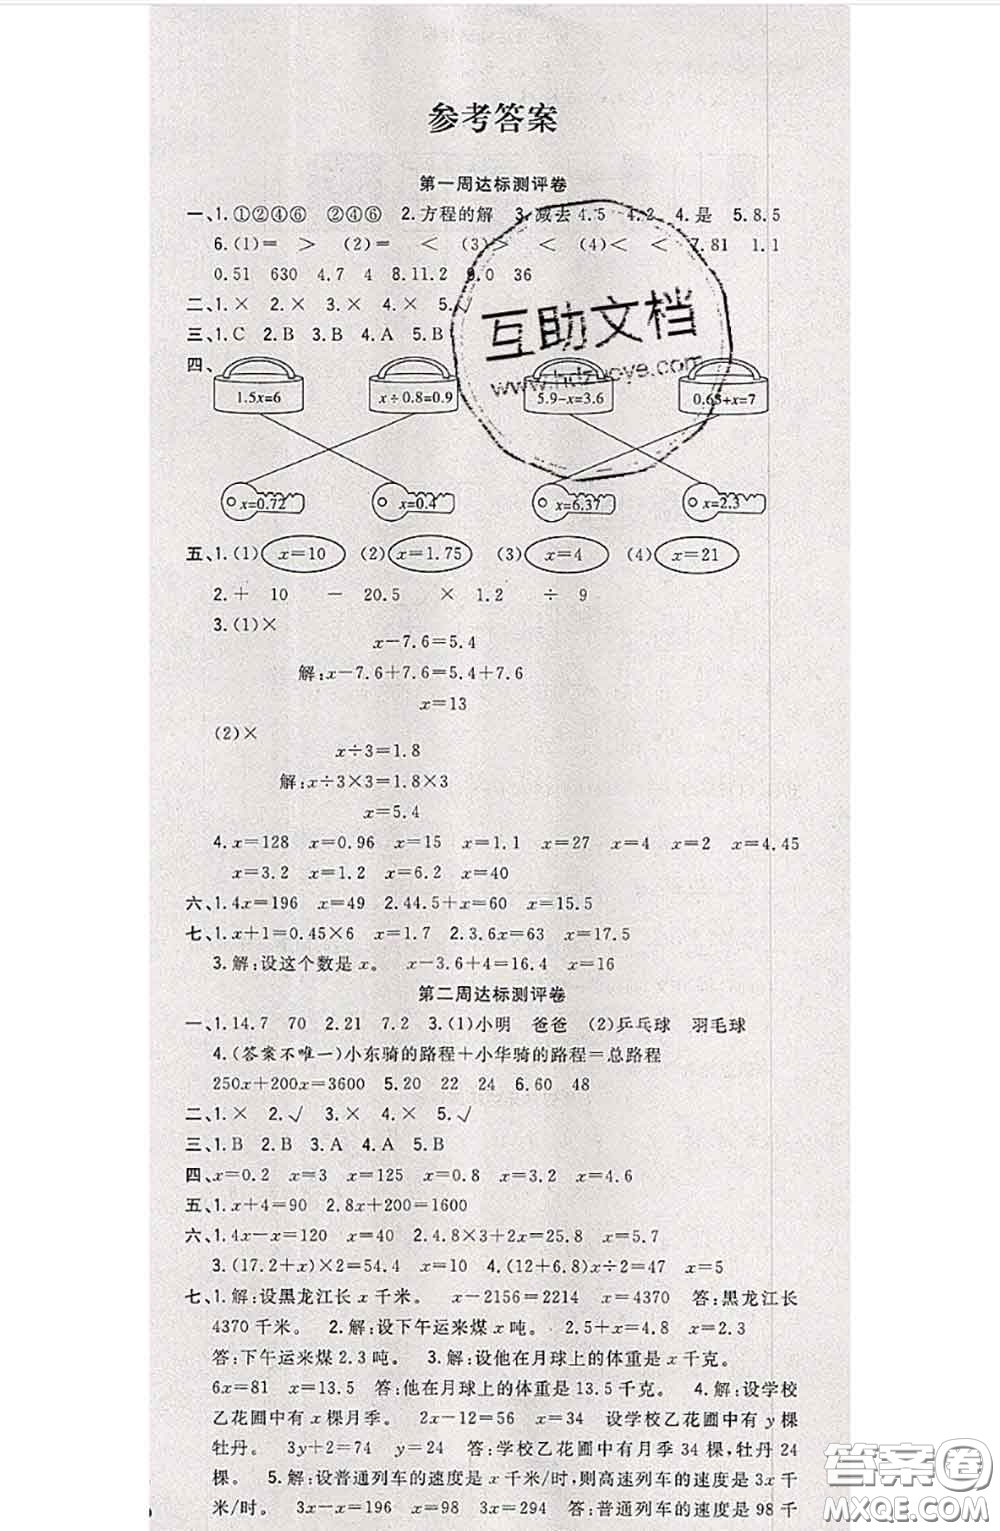 参考答案
第一周达标测评卷
一、1.①②④⑥ ②④⑥ 2.方程的解 3.减去4.5 4.2 4.是 5.8.5
6.(1)= > (2)= < (3)> < (4)< < 7.81 1.1
0.51 630 4.7 4 8.11.2 9.0 36
二、1.× 2.× 3.× 4.× 5.√
三、1.C 2.B 3.B 4.A 5.B
四、
1.5x=6 x÷0.8=0.9 5.9-x=3.6 0.63+x=7
x=0.72 x=0.4 x=6.37 x=2.3
五、1.(1) x=10 (2) x=1.75 (3) x=4 (4) x=21
2.+ 10 - 20.5 × 1.2 ÷ 9
3.(1)×
x-7.6=5.4
解:x-7.6+7.6=5.4+7.6
x=13
(2)×
x÷3=1.8
解:x÷3×3=1.8×3
x=5.4
4.x=128 x=0.96 x=15 x=1.1 x=27 x=4 x=2 x=4.45
x=3.2 x=1.2 x=6.2 x=40
六、1.4x=196 x=49 2.44.5+x=60 x=15.5
七、1.x+1=0.45×6 x=1.7 2.3.6x=63 x=17.5
3.解:设这个数是x。 x-3.6+4=16.4 x=16
第二周达标测评卷
一、1.14.7 70 2.21 7.2 3.(1)小明 爸爸 (2)乒乓球 羽毛球
4.(答案不唯一)小东骑的路程+小华骑的路程=总路程
250x+200x=3600 5.20 22 24 6.60 48
二、1.× 2.√ 3.× 4.× 5.√
三、1.B 2.B 3.A 4.A 5.B
四、x=0.2 x=3 x=125 x=1.7 x=3.2 x=4.6
五、1.x+4=90 2.8x+200=1600
六、1.4x-x=120 x=40 2.4.8×3+2x=25.8 x=5.7
3.(17.2+x)×2=54.4 x=10 4.(12+6.8)x÷2=47 x=5
七、1.解:设黑龙江长x千米。 x-2156=2214 x=4370 答:黑龙江长
4370千米。 2.解:设下午运来煤x吨。 2.5+x=4.8 x=2.3
答:下午运来煤2.3吨。 3.解:设他在月球上的体重是x千克。
6x=81 x=13.5 答:他在月球上的体重是13.5千克。 4.解:设学校
乙花圃中有x棵月季。 2x-12=56 x=34 设学校乙花圃中有y棵
牡丹。 3y+2=74 y=24 答:学校乙花圃中有月季34棵,牡丹24
棵。 5.解:设普通列车的速度是x千米/时,则高速列车的速度是3x千
米/时。 3x-x=196 x=98 3x=294 答:普通列车的速度是98千
互助文档
www.hdzuoye.com
答案圈
MXQE.COM